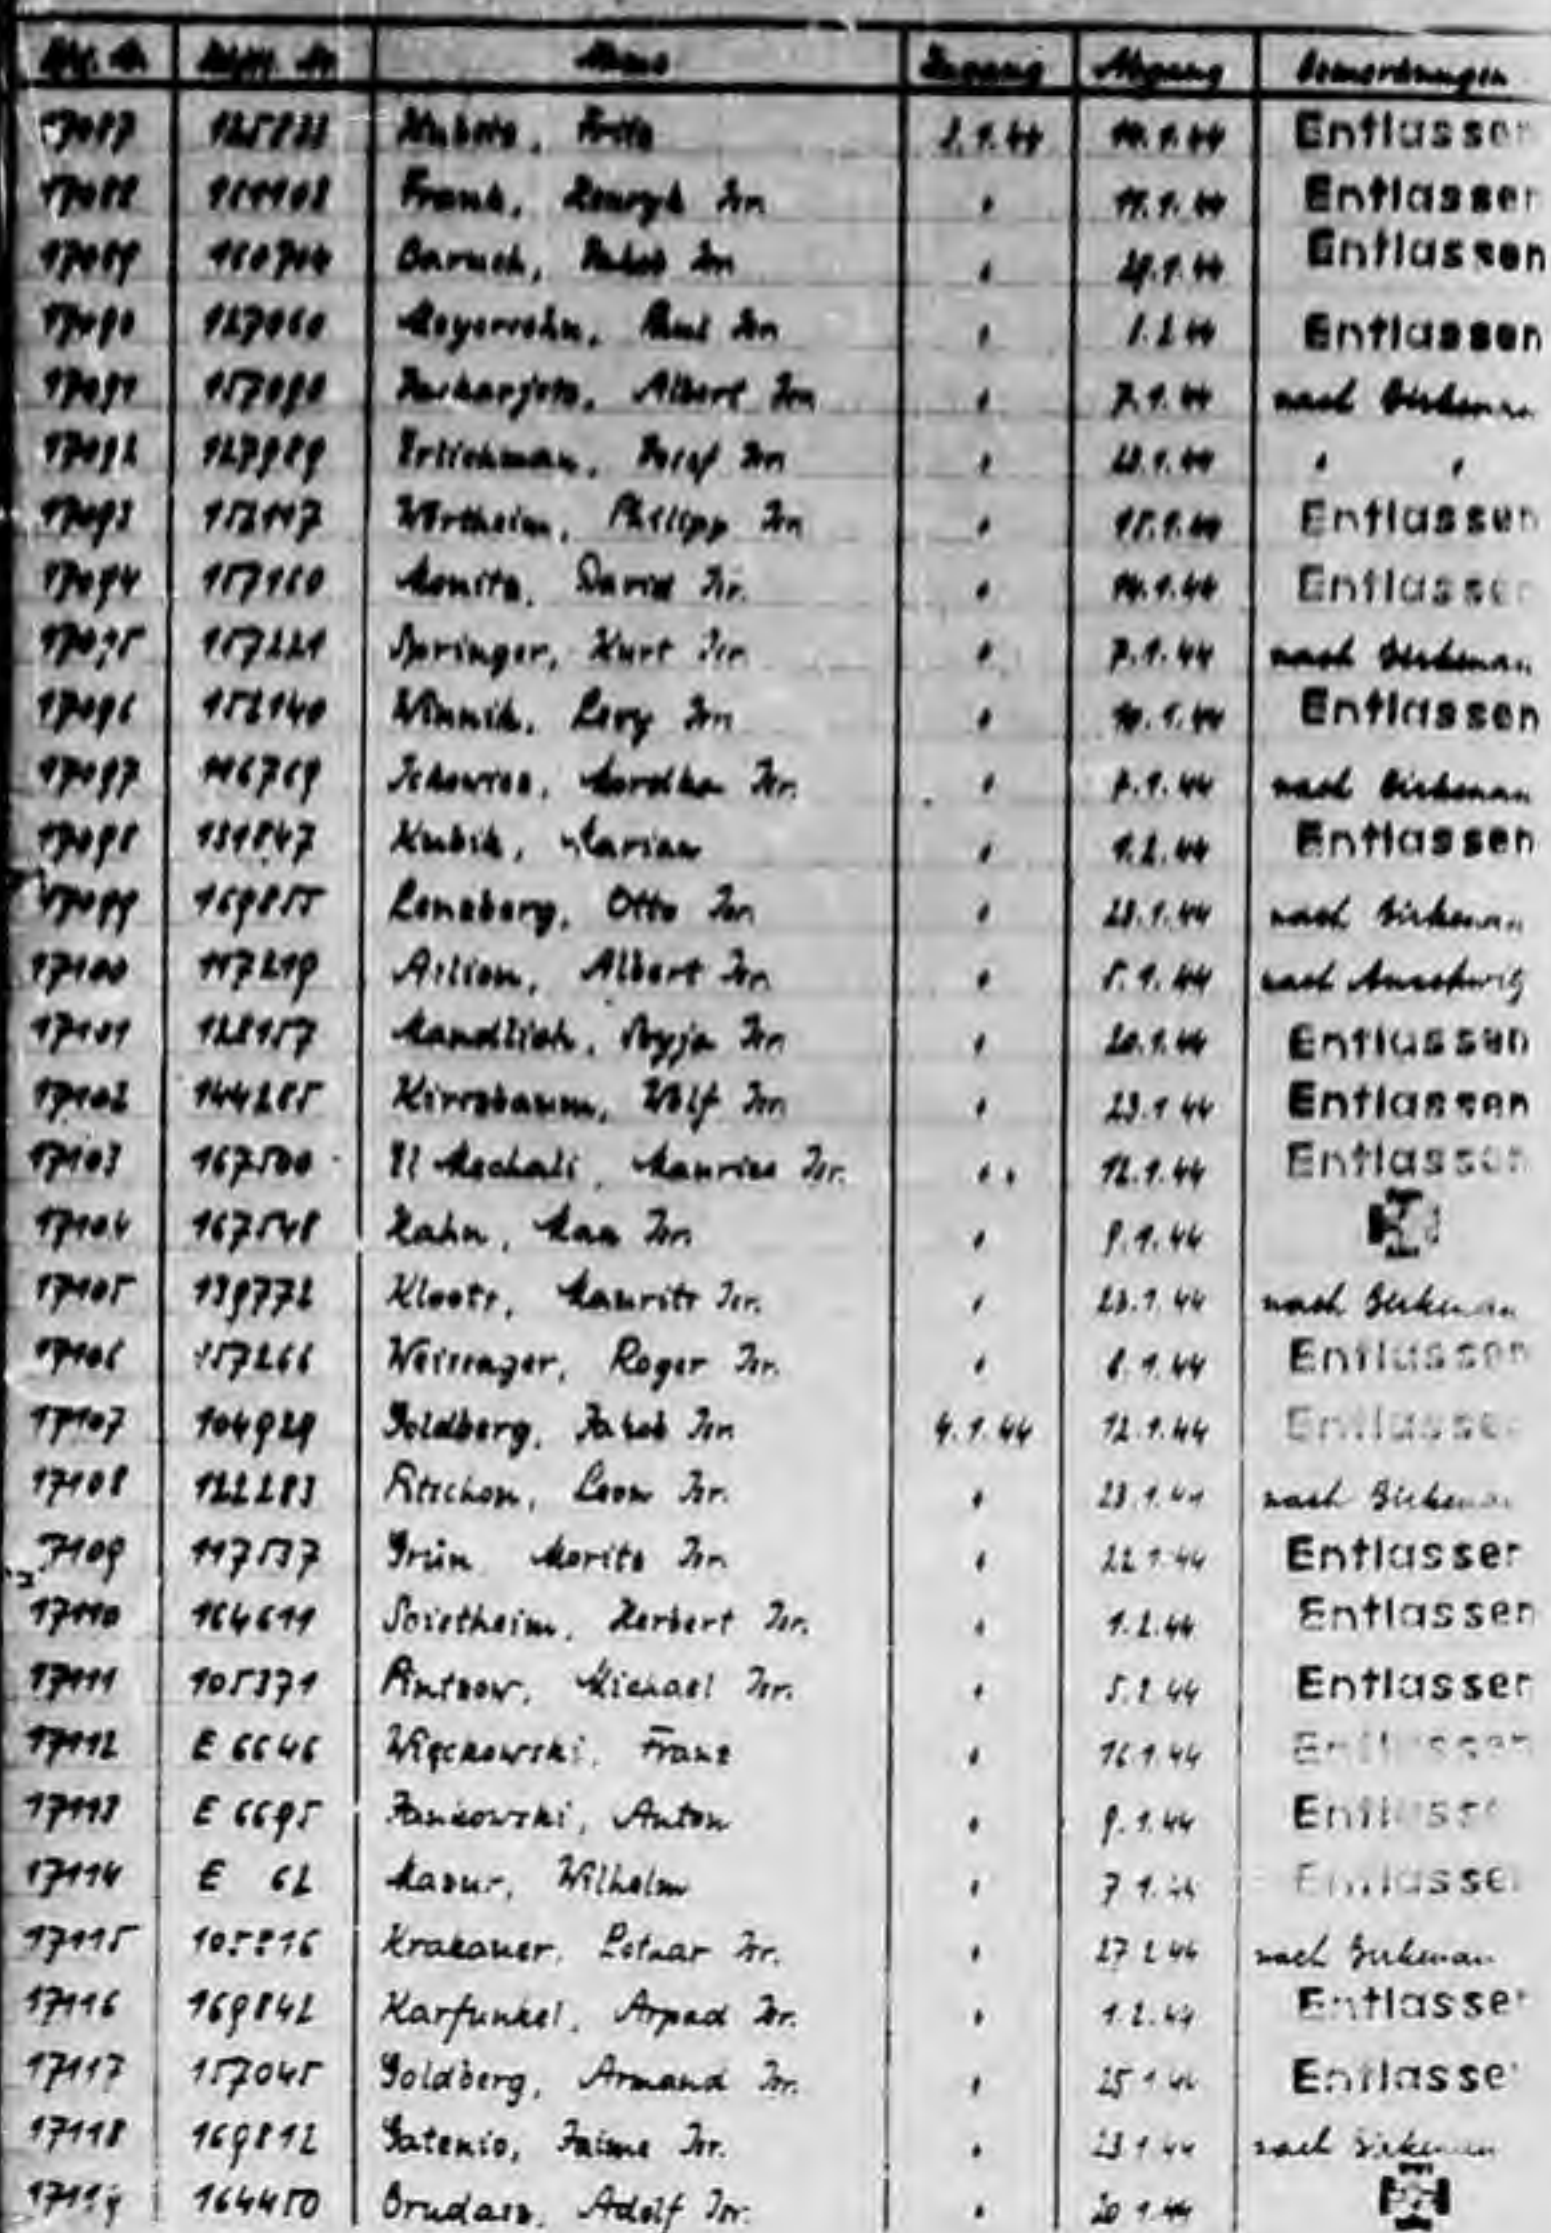 Zugang Abgang Bemerkungen
17087 Fritz 14.1.44 Entlassen
17088 Frank, Henryk Isr. " 11.1.44 Entlassen
17089 160704 Baruch, Isr. " 29.1.44 Entlassen
17090 127060 Meyersohn, Paul Isr. " 1.2.44 Entlassen
17091 157090 Albert Isr. " 7.1.44 nach Birkenau
17092 127989 Erlichman, Josef Isr. " 23.1.44 " "
17093 152117 Wertheim, Philipp Isr. " 15.1.44 Entlassen
17094 157160 David Isr. " 14.1.44 Entlassen
17095 157221 Springer, Kurt Isr. " 7.1.44 nach Birkenau
17096 152140 Winnik, Levy Isr. " 10.1.44 Entlassen
17097 116769 Ickowicz, Mordka Isr. " 7.1.44 nach Birkenau
17098 131847 Kubik, Marian " 1.2.44 Entlassen
17099 169855 Leneberg, Otto Isr. " 23.1.44 nach Birkenau
17100 117219 Albert Isr. " 5.1.44 nach Auschwitz
17101 128157 Isr. " 20.1.44 Entlassen
17102 144285 Kirszbaum, Wolf Isr. " 23.1.44 Entlassen
17103 167500 El Mechali, Maurice Isr. " 12.1.44 Entlassen
17104 167548 Kahn, Max Isr. " 9.1.44
17105 139772 Kloots, Maurits Isr. " 23.1.44 nach Birkenau
17106 157266 Roger Isr. " 8.1.44 Entlassen
17107 104929 Goldberg, Jakob Isr. 4.1.44 12.1.44 Entlassen
17108 122283 Leon Isr. " 23.1.44 nach Birkenau
17109 117537 Grün Moritz Isr. " 22.1.44 Entlassen
17110 164611 Herbert Isr. " 1.2.44 Entlassen
17111 105371 Michael Isr. " 5.2.44 Entlassen
17112 E 6646 Więckowski, Franz " 16.1.44 Entlassen
17113 E 6695 Jankowski, Anton " 9.1.44 Entlassen
17114 E 62 Mazur, Wilhelm " 7.1.44 Entlassen
17115 105816 Krakauer, Lothar Isr. " 27.2.44 nach Birkenau
17116 169842 Karfunkel, Arpad Isr. " 1.2.44 Entlassen
17117 157045 Goldberg, Armand Isr. " 25.1.44 Entlassen
17118 169812 Gatenio, Jaime Isr. " 23.1.44 nach Birkenau
17119 164450 Adolf Isr. " 20.1.44